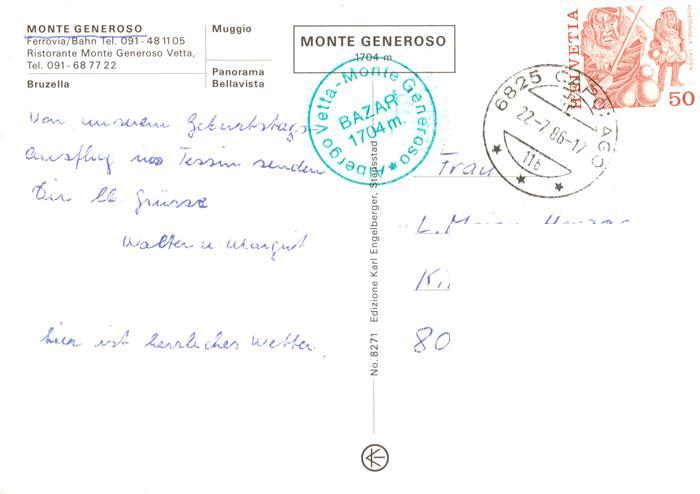 MONTE GENEROSO
Ferrovia/Bahn Tel. 091-481105
Ristorante Monte Generoso Vetta,
Tel. 091-687722
Bruzella
Muggio
Panorama
Bellavista
MONTE GENEROSO
1704 m
Albergo Vetta-Monte Generoso
BAZAR
1704 m.
6825 CAPOLAGO
22-7.86-17
11b
HELVETIA
50
Von unserem Geburtstags-
ausflug ins Tessin senden
Dir lb. Grüsse
Walter u. Margrit
hier ist herrliches Wetter.
Frau
L.
80
No. 8271 Edizione Karl Engelberger, Stansstad